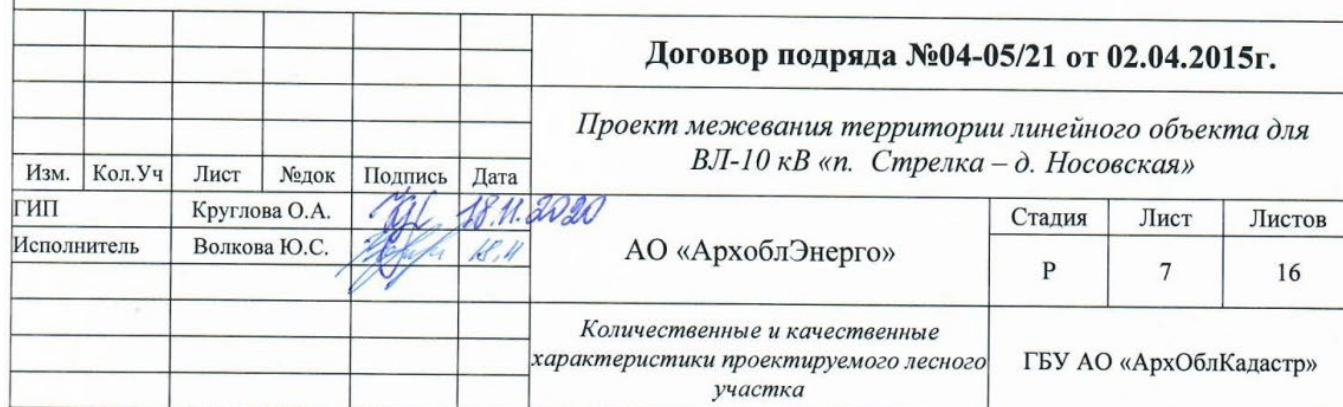 Договор подряда №04-05/21 от 02.04.2015г.
Проект межевания территории линейного объекта для
ВЛ-10 кВ «п. Стрелка – д. Носовская»
Изм. Кол.Уч Лист №док Подпись Дата
ГИП Круглова О.А. 18.11.2020
Исполнитель Волкова Ю.С. 18.11
АО «АрхоблЭнерго»
Стадия Лист Листов
Р 7 16
Количественные и качественные
характеристики проектируемого лесного
участка
ГБУ АО «АрхОблКадастр»